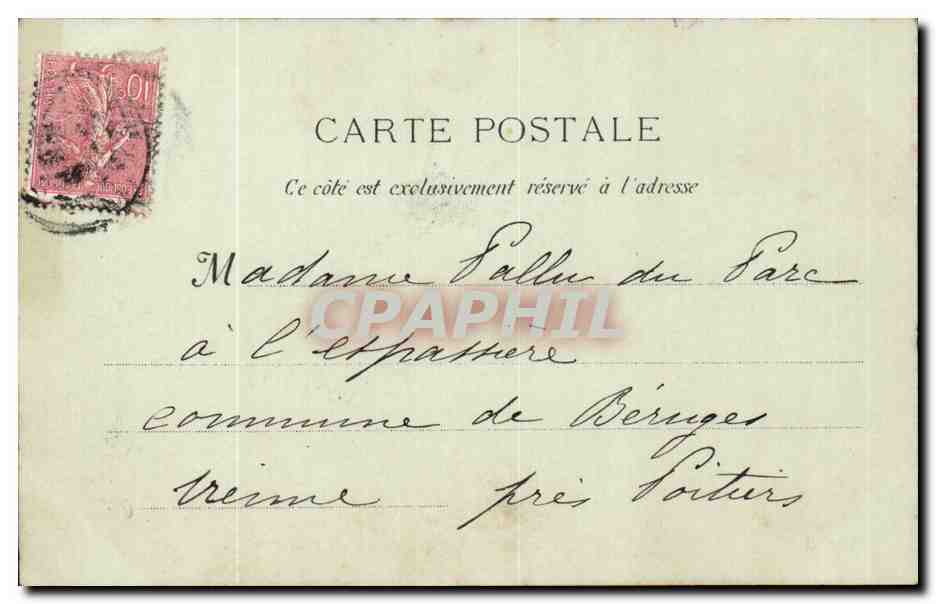 CARTE POSTALE
Ce côté est exclusivement réservé à l'adresse
Madame Pallu du Parc
CPAPHIL
à l'Espassière
commune de Béruges
Vienne près Poitiers